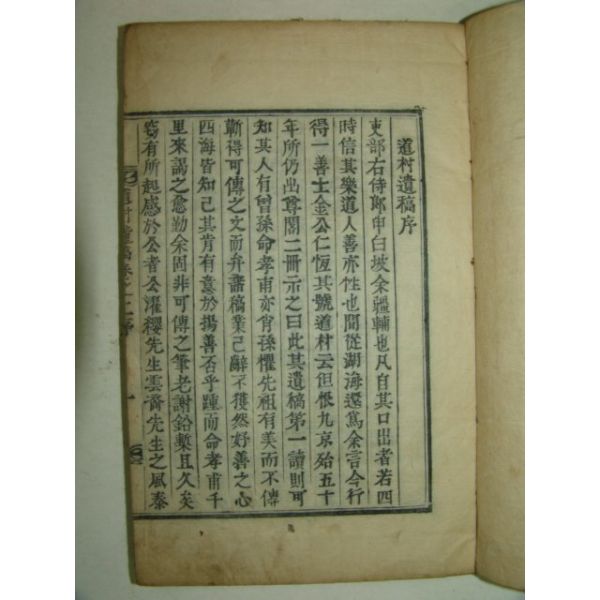 道村遺稿序
吏部右侍郎申白坡余疆輔也凡自其口出者若四
時信其樂道人善亦性也間從湖海還爲余言今行
得一善士金公仁恆其號道村云但恨九京殆五十
年所仍出尊閣二冊示之曰此其遺稿第一讀則可
知其人有曾孫命孝甫亦肖孫懼先祖有美而不傳
蘄得可傳之文而弁諸稿業已辭不獲然好善之心
四海皆知己其肯有意於揚善否乎踵而命孝甫千
里來謁之愈勤余固非可傳之筆老謝鉛槧且久矣
竊有所起感於公者公濯纓先生雲齋先生之風秦
道村遺稿卷之一序
一